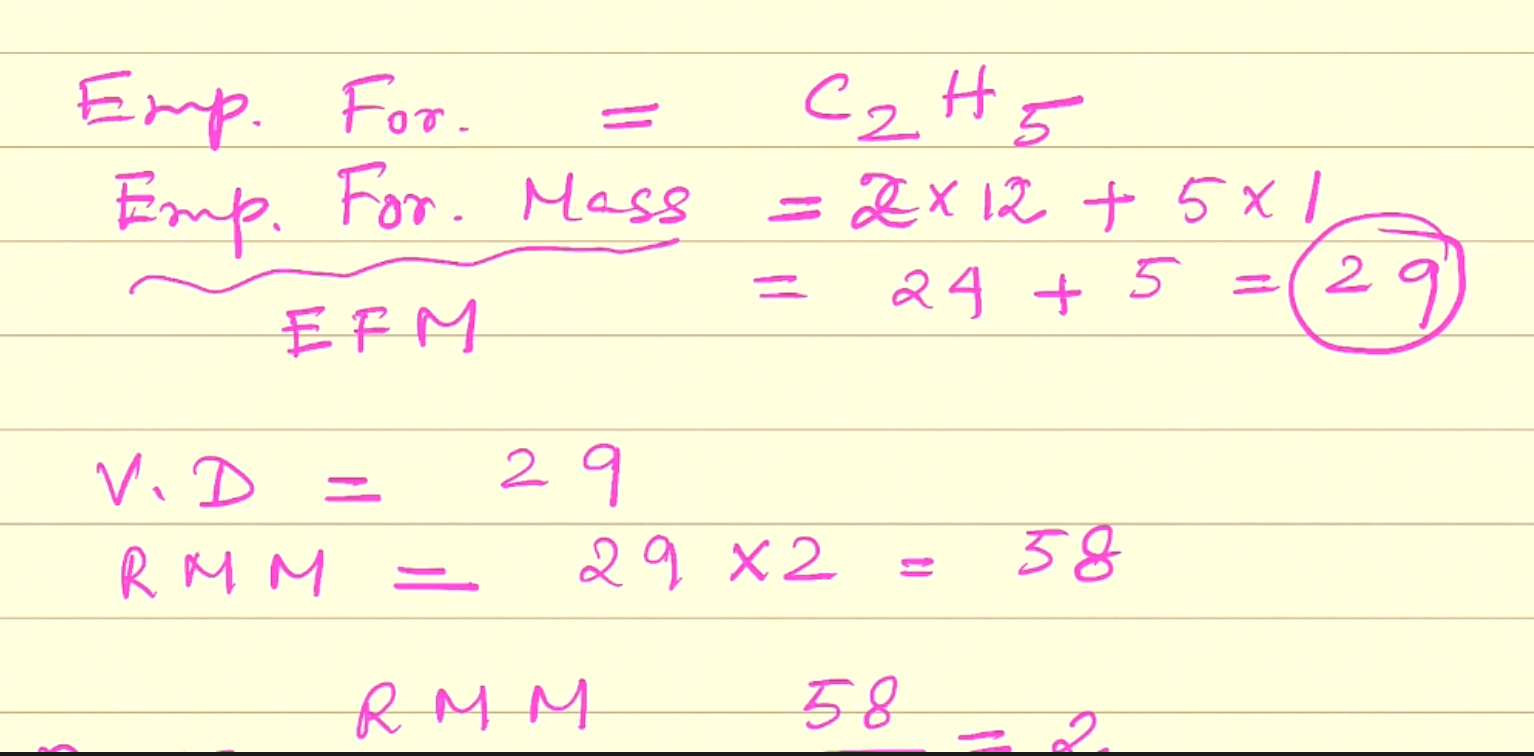 Emp. For. = C₂H₅
Emp. For. Mass = 2 x 12 + 5 x 1
= 24 + 5 = 29
EFM
V.D = 29
RMM = 29 x 2 = 58
RMM 58 = 2